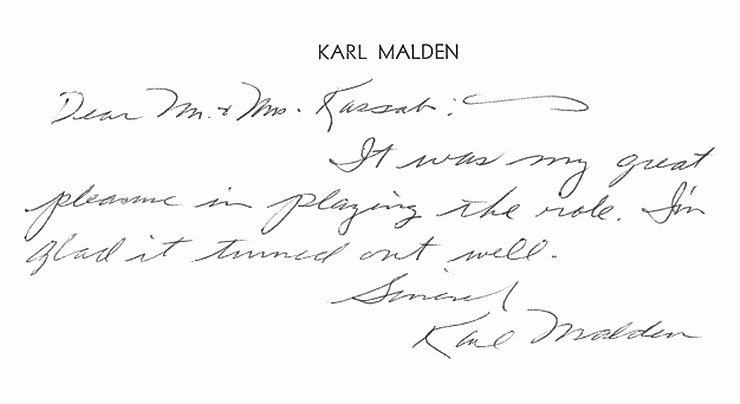 KARL MALDEN
Dear Mr. & Mrs. Kassab:
It was my great
pleasure in playing the role. I'm
glad it turned out well.
Sincerel
Karl Malden